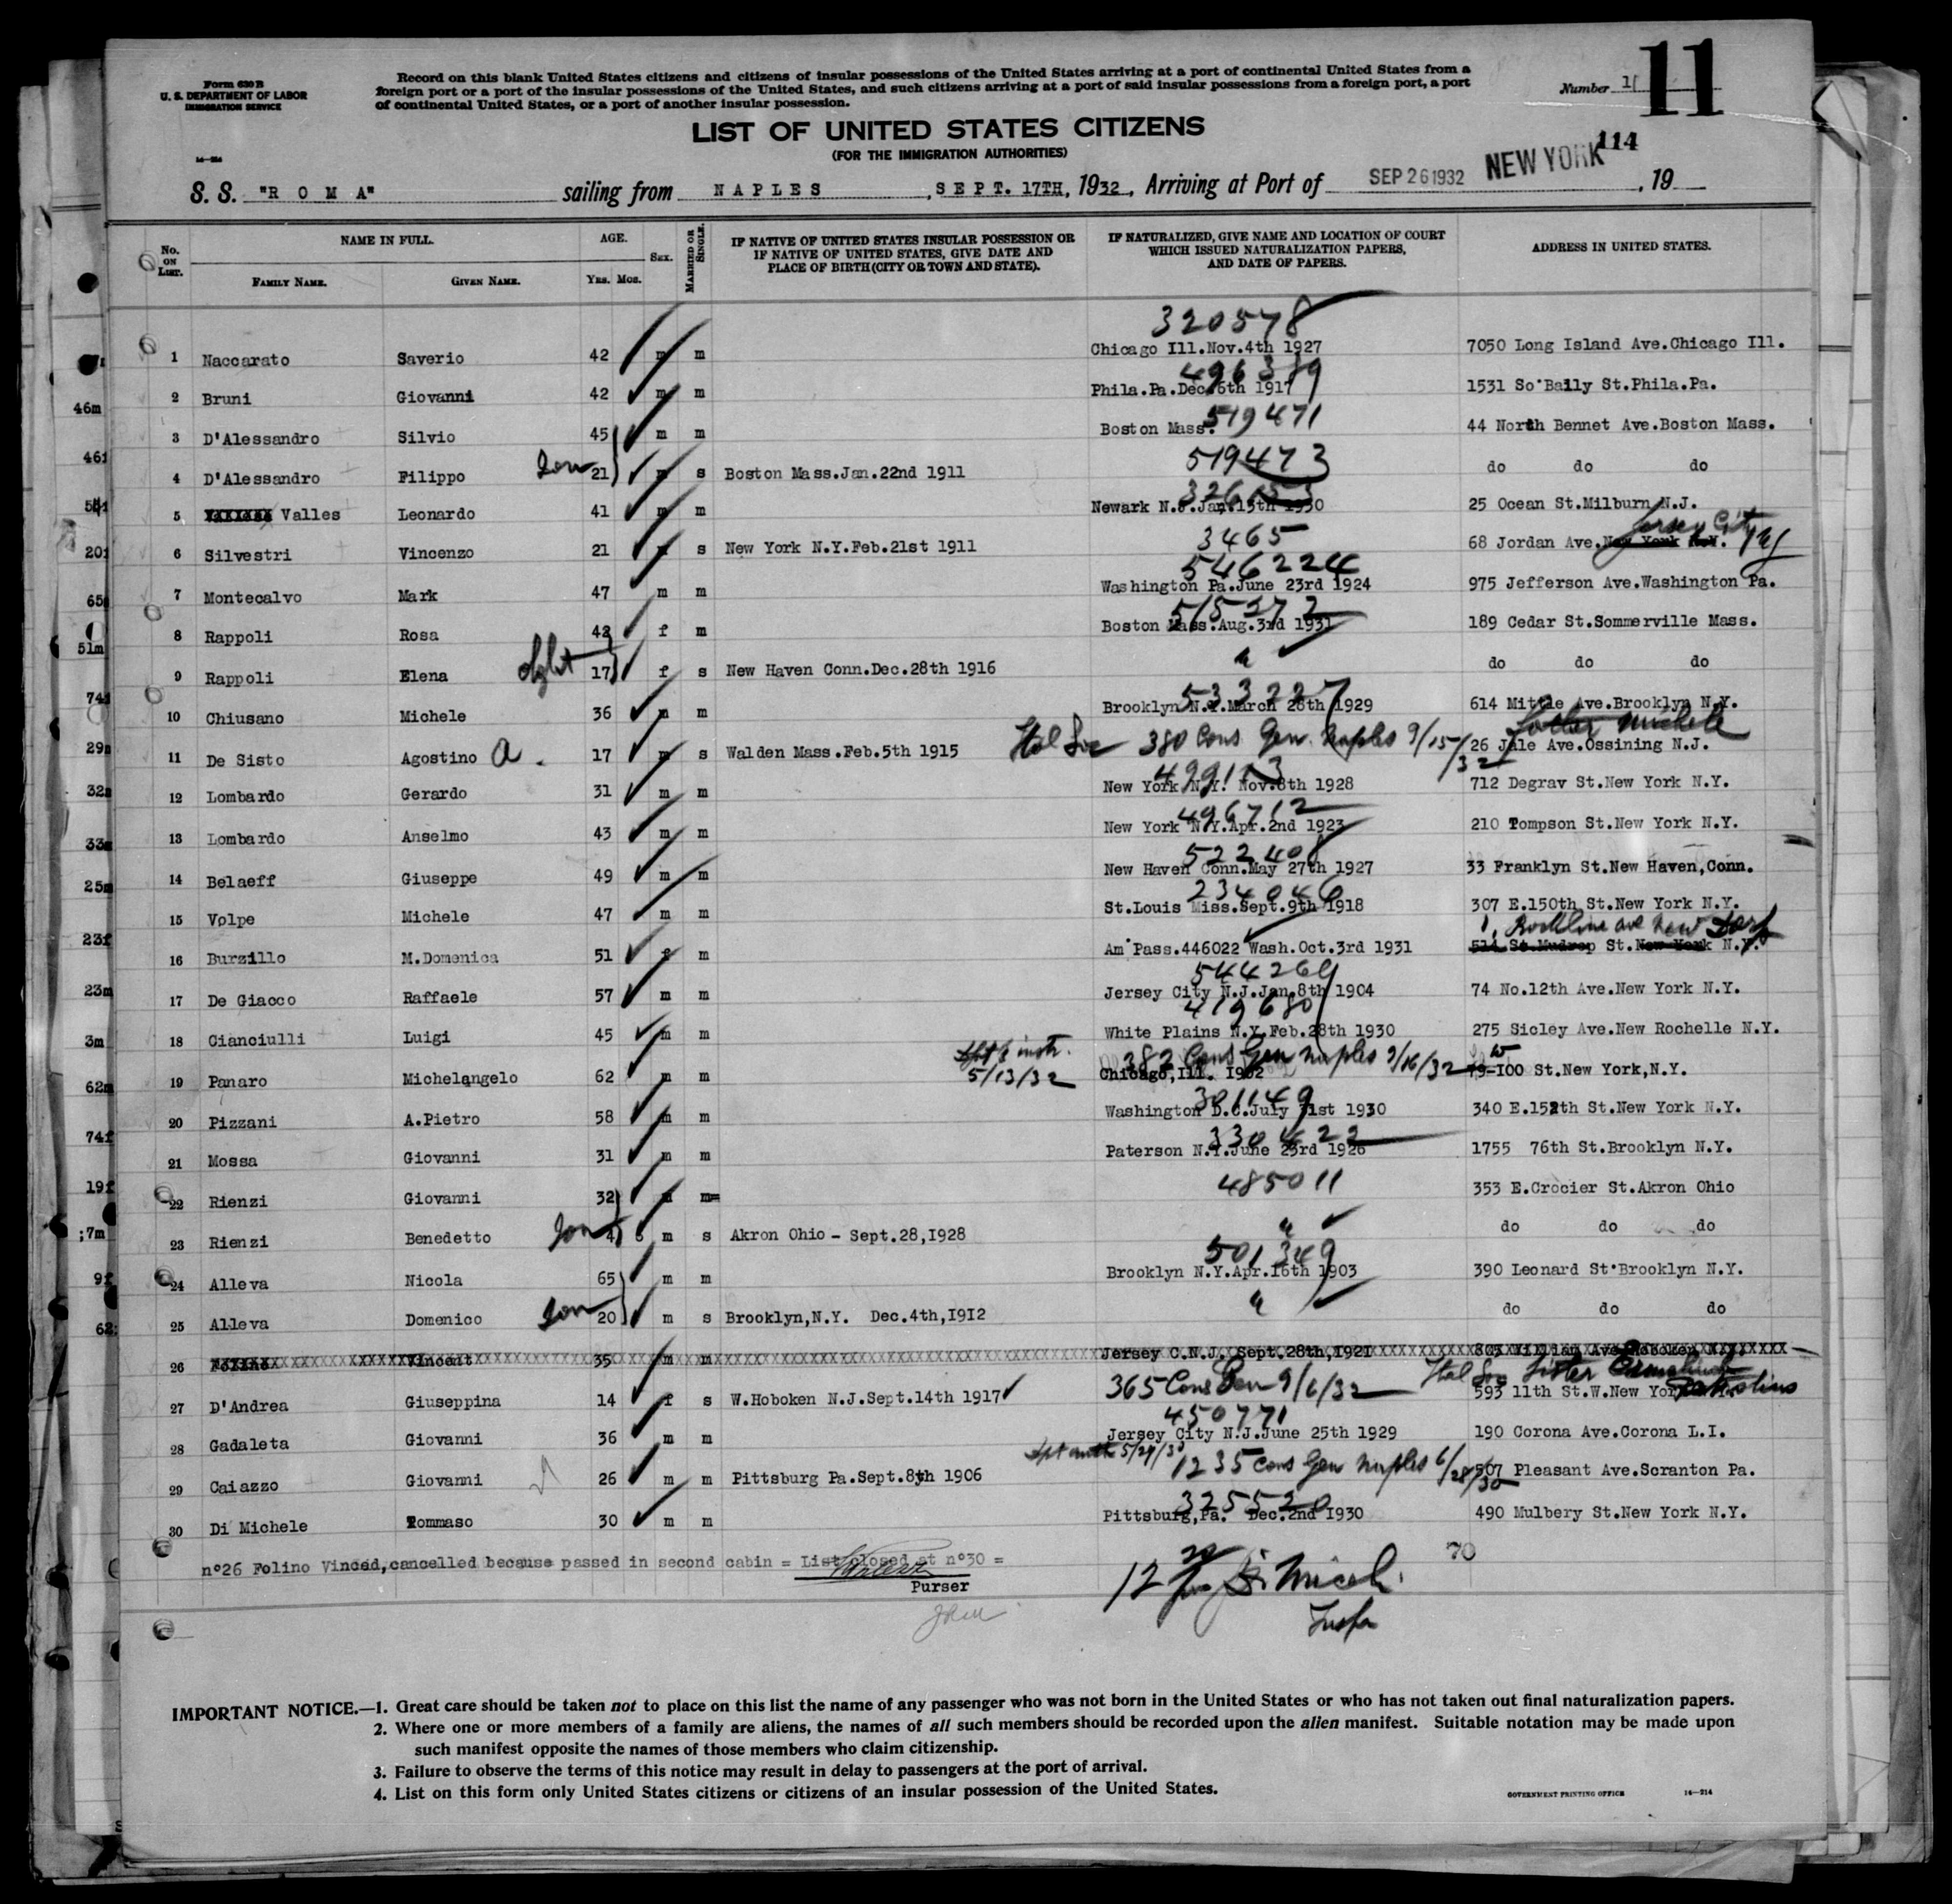 Form 630 B
U. S. DEPARTMENT OF LABOR
IMMIGRATION SERVICE
Record on this blank United States citizens and citizens of insular possessions of the United States arriving at a port of continental United States from a
foreign port or a port of the insular possessions of the United States, and such citizens arriving at a port of said insular possessions from a foreign port, a port
of continental United States, or a port of another insular possession.
Number 11
11
LIST OF UNITED STATES CITIZENS
(FOR THE IMMIGRATION AUTHORITIES)
114
S. S. "R O M A" sailing from NAPLES, SEPT. 17TH, 1932, Arriving at Port of SEP 26 1932 NEW YORK, 19
No. ON LIST. NAME IN FULL. AGE. SEX. MARRIED OR SINGLE. IF NATIVE OF UNITED STATES INSULAR POSSESSION OR IF NATIVE OF UNITED STATES, GIVE DATE AND PLACE OF BIRTH (CITY OR TOWN AND STATE). IF NATURALIZED, GIVE NAME AND LOCATION OF COURT WHICH ISSUED NATURALIZATION PAPERS, AND DATE OF PAPERS. ADDRESS IN UNITED STATES.
FAMILY NAME. GIVEN NAME. YRS. MOS.
320578
1 Naccarato Saverio 42 m m Chicago Ill.Nov.4th 1927 7050 Long Island Ave.Chicago Ill.
496389
2 Bruni Giovanni 42 m m Phila.Pa.Dec.6th 1917 1531 So.Baily St.Phila.Pa.
519471
3 D'Alessandro Silvio 45 m m Boston Mass. 44 North Bennet Ave.Boston Mass.
4 D'Alessandro Filippo Son 21 m s Boston Mass.Jan.22nd 1911 519473 do do do
326153
5 Valles Leonardo 41 m m Newark N.J.Jan.15th 1930 25 Ocean St.Milburn N.J.
Jersey City NJ
6 Silvestri Vincenzo 21 m s New York N.Y.Feb.21st 1911 3465 68 Jordan Ave.New York N.Y.
546224
7 Montecalvo Mark 47 m m Washington Pa.June 23rd 1924 975 Jefferson Ave.Washington Pa.
515372
8 Rappoli Rosa 42 f m Boston Mass.Aug.3rd 1931 189 Cedar St.Sommerville Mass.
9 Rappoli Elena 17 f s New Haven Conn.Dec.28th 1916 " do do do
533227
10 Chiusano Michele 36 m m Brooklyn N.Y.March 28th 1929 614 Mittle Ave.Brooklyn N.Y.
father Michele
11 De Sisto Agostino A. 17 m s Walden Mass.Feb.5th 1915 Ital Soc 380 Cons Gen Naples 9/15/32 26 Jale Ave.Ossining N.J.
499113
12 Lombardo Gerardo 31 m m New York N.Y. Nov.8th 1928 712 Degrav St.New York N.Y.
496712
13 Lombardo Anselmo 43 m m New York N.Y.Apr.2nd 1923 210 Tompson St.New York N.Y.
522408
14 Belaeff Giuseppe 49 m m New Haven Conn.May 27th 1927 33 Franklyn St.New Haven,Conn.
234046
15 Volpe Michele 47 m m St.Louis Miss.Sept.9th 1918 307 E.150th St.New York N.Y.
1, Rockline ave New Dorp
16 Burzillo M.Domenica 51 f m Am.Pass.446022 Wash.Oct.3rd 1931 514 St.Mudrop St.New York N.Y.
544269
17 De Giacco Raffaele 57 m m Jersey City N.J.Jan.8th 1904 74 No.12th Ave.New York N.Y.
419680
18 Cianciulli Luigi 45 m m White Plains N.Y.Feb.28th 1930 275 Sicley Ave.New Rochelle N.Y.
5/13/32 382 Cons Gen Naples 9/16/32 W
19 Panaro Michelangelo 62 m m Chicago,Ill. 1902 79-100 St.New York,N.Y.
301149
20 Pizzani A.Pietro 58 m m Washington D.C.July 31st 1930 340 E.152th St.New York N.Y.
330422
21 Mossa Giovanni 31 m m Paterson N.J.June 23rd 1926 1755 76th St.Brooklyn N.Y.
22 Rienzi Giovanni 32 m m 485011 353 E.Crocier St.Akron Ohio
23 Rienzi Benedetto Son 4 6 m s Akron Ohio - Sept.28,1928 " do do do
501349
24 Alleva Nicola 65 m m Brooklyn N.Y.Apr.16th 1903 390 Leonard St.Brooklyn N.Y.
25 Alleva Domenico Son 20 m s Brooklyn,N.Y. Dec.4th,1912 " do do do
26 Folino Vincent 35 m m Jersey C.N.J. Sept.28th,1921
Ital Soc Sister
27 D'Andrea Giuseppina 14 f s W.Hoboken N.J.Sept.14th 1917 365 Cons Gen 9/6/32 593 11th St.W.New York
450771
28 Gadaleta Giovanni 36 m m Jersey City N.J.June 25th 1929 190 Corona Ave.Corona L.I.
29 Caiazzo Giovanni 26 m m Pittsburg Pa.Sept.8th 1906 1235 Cons Gen Naples 507 Pleasant Ave.Scranton Pa.
325520
30 Di Michele Tommaso 30 m m Pittsburg,Pa. Dec.2nd 1930 490 Mulbery St.New York N.Y.
n°26 Folino Vinced,cancelled because passed in second cabin = List closed at n°30 =
Purser
70
IMPORTANT NOTICE.—1. Great care should be taken not to place on this list the name of any passenger who was not born in the United States or who has not taken out final naturalization papers.
2. Where one or more members of a family are aliens, the names of all such members should be recorded upon the alien manifest. Suitable notation may be made upon
such manifest opposite the names of those members who claim citizenship.
3. Failure to observe the terms of this notice may result in delay to passengers at the port of arrival.
4. List on this form only United States citizens or citizens of an insular possession of the United States.
GOVERNMENT PRINTING OFFICE 14—214